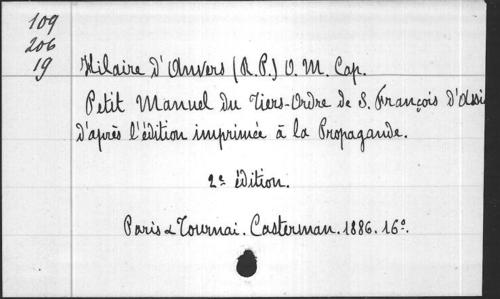 109
206
19
Hilaire d'Anvers (R.P.) O. M. Cap.
Petit Manuel du Tiers-Ordre de S. François d'Assi
d'après l'édition imprimée à la Propagande.
2e édition.
Paris & Tournai. Casterman. 1886. 16°.